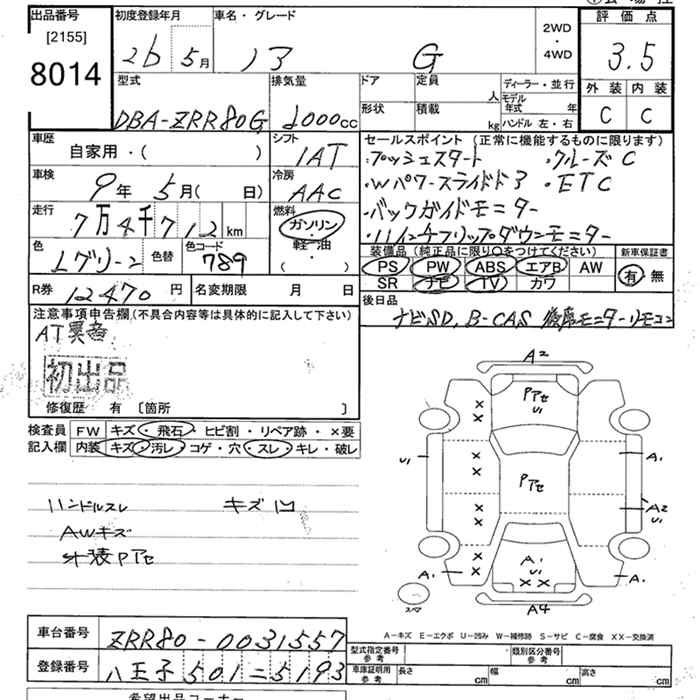 出品番号 初度登録年月 車名・グレード 評価点
[2155]
8014 26 5月 13 G 2WD・4WD 3.5
外装 内装
C C
型式 排気量 ドア 定員 人 ディーラー・並行
DBA-ZRR80G 2000cc 形状 積載 kg モデル年式 年
ハンドル 左・右
車歴 自家用・( ) シフト 1AT
セールスポイント(正常に機能するものに限ります)
・プッシュスタート ・クルーズC
・Wパワースライドド ・ETC
・バックガイドモニター
・11インチフリップダウンモニター
車検 9年 5月( 日) 冷房 AAC
走行 7万4千712km 燃料 ガソリン・軽油 ( )
色 Lグリーン 色替 色コード 789
装備品(純正品に限り○をつけてください) 新車保証書
PS PW ABS エアB AW 有・無
SR ナビ TV カワ
R券 12470円 名変期限 月 日
後日品
ナビSD, B-CAS 後席モニターリモコン
注意事項申告欄(不具合内容等は具体的に記入して下さい)
AT異音
初出品
修復歴 有 [箇所 ]
検査員記入欄 FW キズ・飛石・ヒビ割・リペア跡・×要
内装 キズ・汚レ・コゲ・穴・スレ・キレ・破レ
ハンドルスレ キズ凹
AWキズ
外装Pアセ
A2
Pアセ
U1
× ×
× ×
U1 A1
Pアセ
× A2
× U1
A1 × × A1 U1 A1
× ×
スペア A4
A-キズ E-エクボ U-凹み W-補修跡 S-サビ C-腐食 XX-交換済
車台番号 ZRR80-0031557
登録番号 八王子 501 ニ 5193
型式指定番号 参考 類別区分番号 参考
車庫証明用 参考 長さ cm 幅 cm 高さ cm
希望出品コーナー